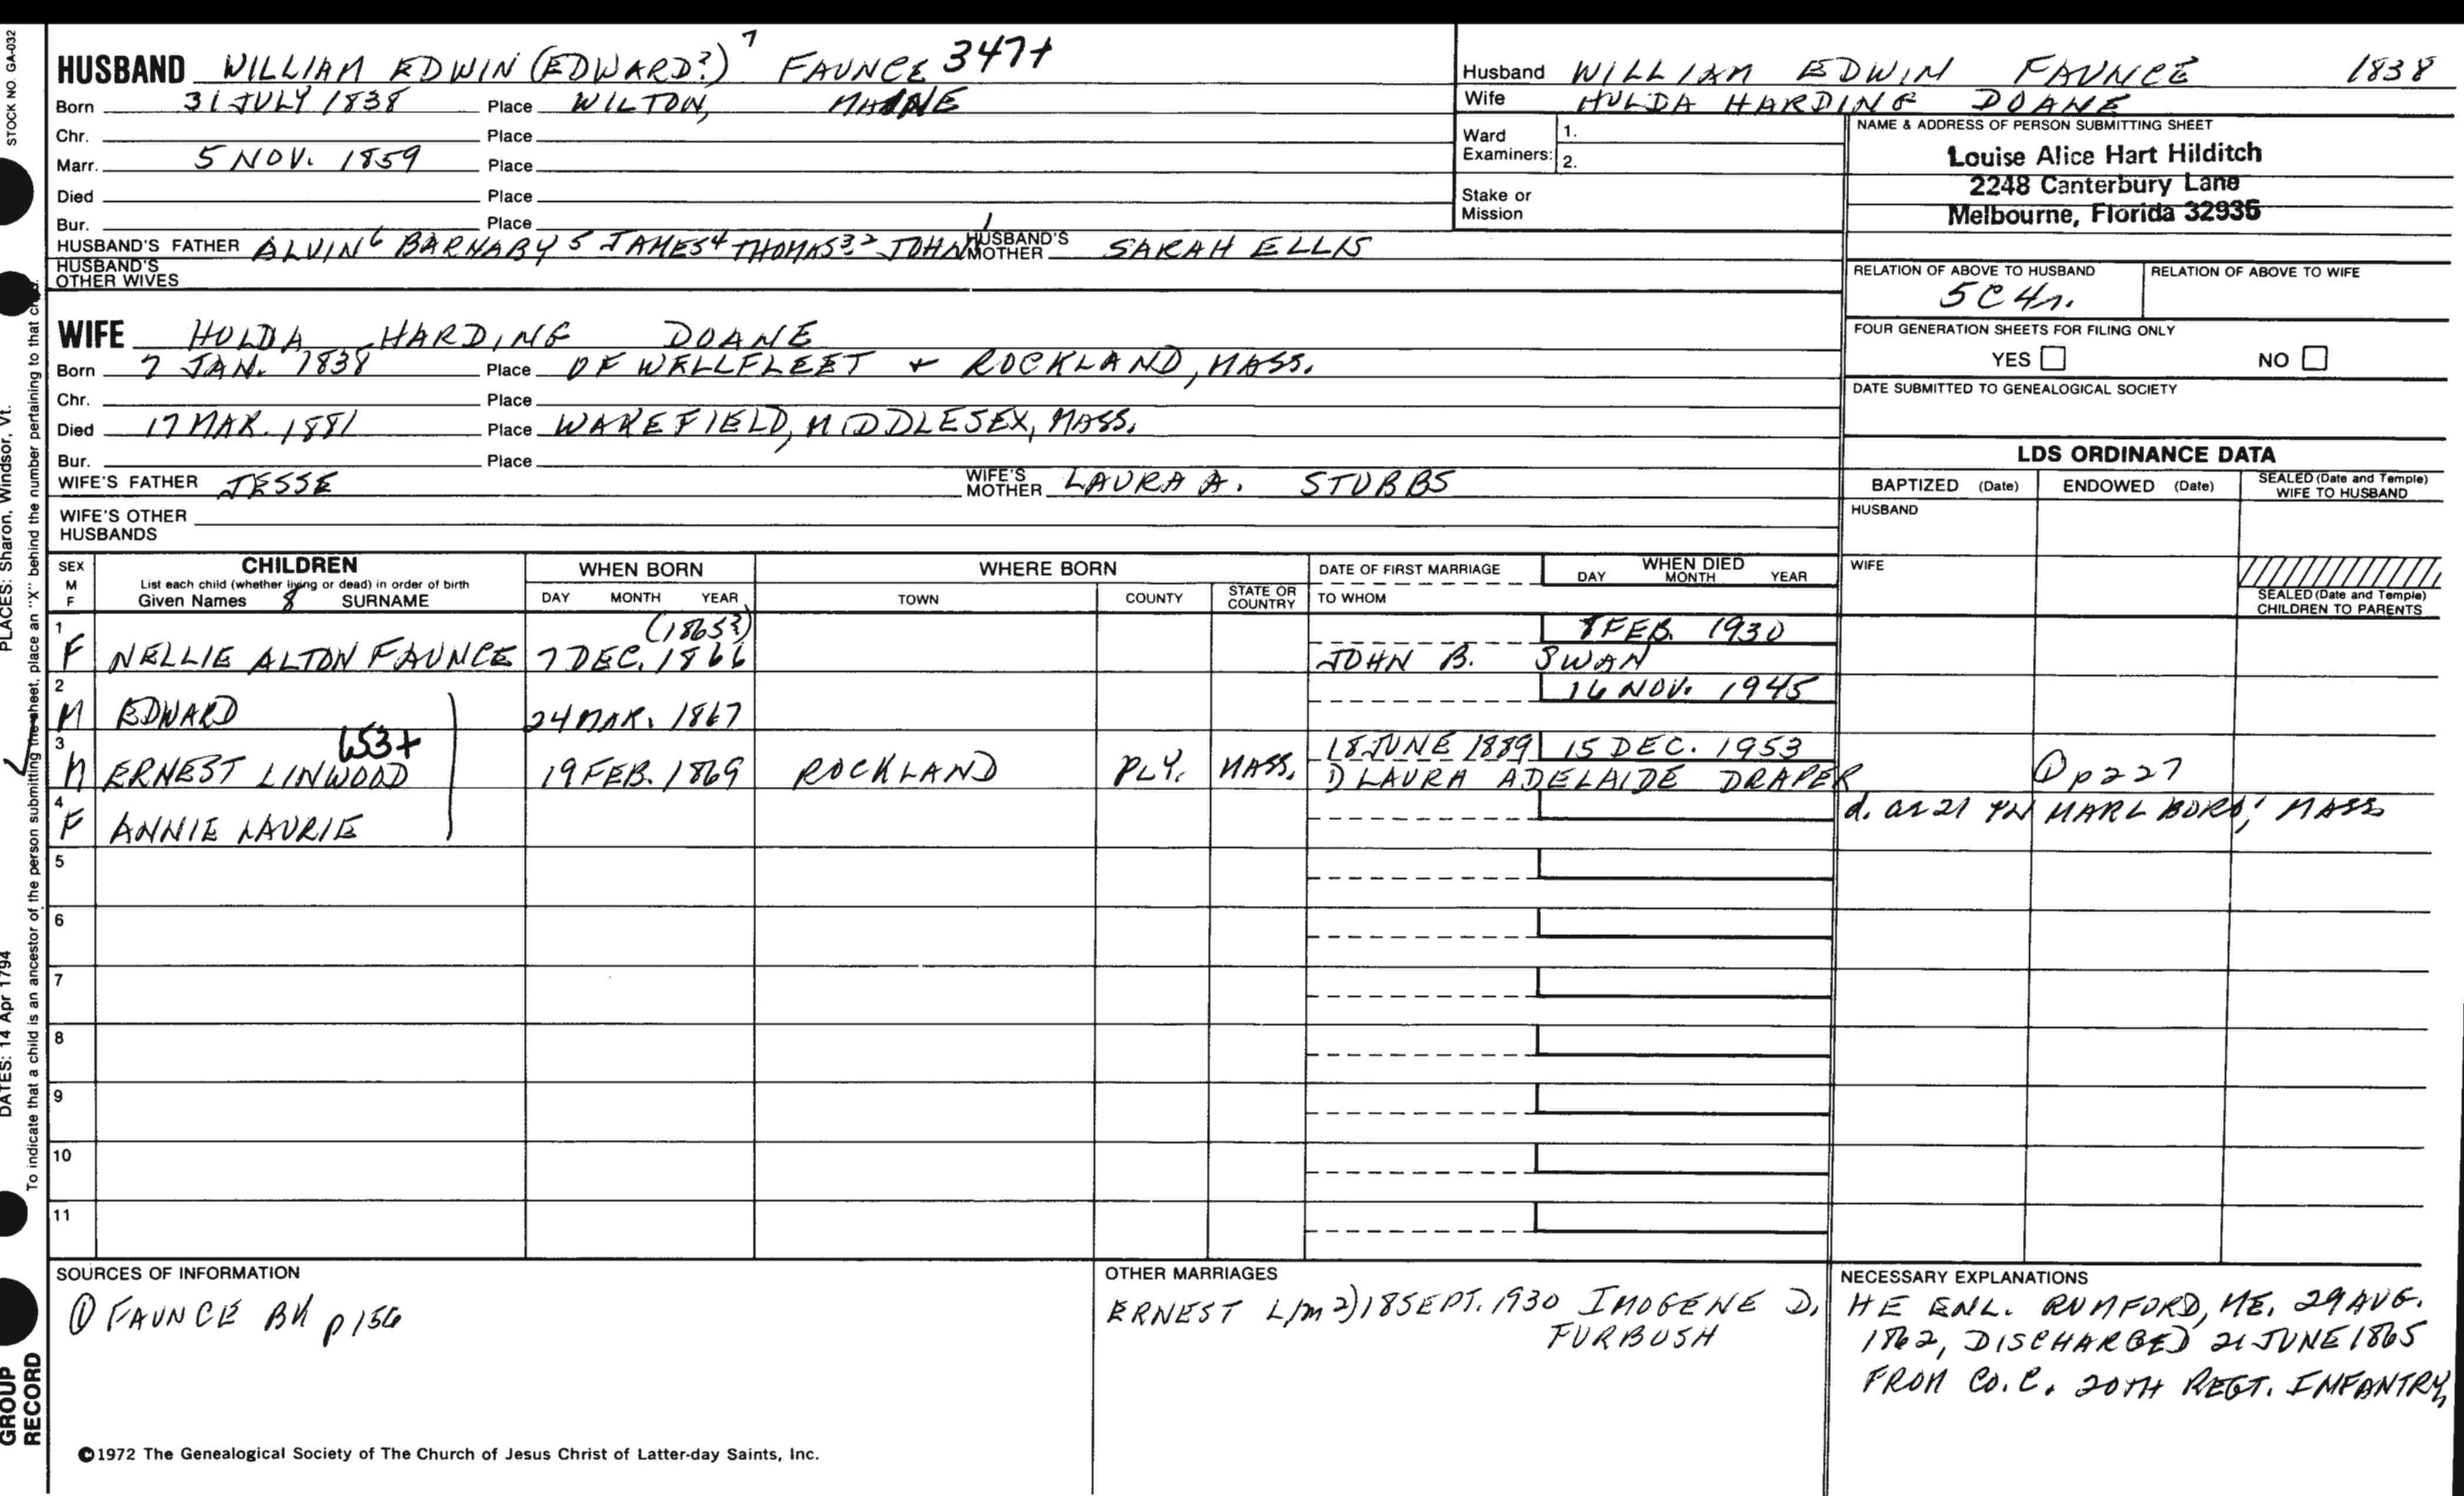 STOCK NO. GA-032
HUSBAND WILLIAM EDWIN (EDWARD?) 7 FAUNCE 347+
Born 31 JULY 1838 Place WILTON, MAINE
Chr. Place
Marr. 5 NOV. 1859 Place
Died Place
Bur. Place
HUSBAND'S FATHER ALVIN 6 BARNABY 5 JAMES 4 THOMAS 3 2 JOHN 1 HUSBAND'S MOTHER SARAH ELLIS
HUSBAND'S OTHER WIVES
WIFE HULDA HARDING DOANE
Born 7 JAN. 1838 Place OF WELLFLEET + ROCKLAND, MASS.
Chr. Place
Died 17 MAR. 1881 Place WAKEFIELD, MIDDLESEX, MASS.
Bur. Place
WIFE'S FATHER JESSE WIFE'S MOTHER LAURA A. STUBBS
WIFE'S OTHER HUSBANDS
Husband WILLIAM EDWIN FAUNCE 1838
Wife HULDA HARDING DOANE
Ward Examiners: 1.
2.
Stake or Mission
NAME & ADDRESS OF PERSON SUBMITTING SHEET
Louise Alice Hart Hilditch
2248 Canterbury Lane
Melbourne, Florida 32935
RELATION OF ABOVE TO HUSBAND RELATION OF ABOVE TO WIFE
5C4r.
FOUR GENERATION SHEETS FOR FILING ONLY
YES NO
DATE SUBMITTED TO GENEALOGICAL SOCIETY
LDS ORDINANCE DATA
BAPTIZED (Date) ENDOWED (Date) SEALED (Date and Temple) WIFE TO HUSBAND
HUSBAND
WIFE
SEALED (Date and Temple) CHILDREN TO PARENTS
SEX M F
CHILDREN
List each child (whether living or dead) in order of birth
Given Names 8 SURNAME
WHEN BORN
DAY MONTH YEAR
WHERE BORN
TOWN COUNTY STATE OR COUNTRY
DATE OF FIRST MARRIAGE
TO WHOM
WHEN DIED
DAY MONTH YEAR
1 (1865?) 8 FEB. 1930
F NELLIE ALTON FAUNCE 7 DEC. 1866 JOHN B. SWAN
2 16 NOV. 1945
M EDWARD 24 MAR. 1867
3 653+ 18 JUNE 1889 15 DEC. 1953
M ERNEST LINWOOD 19 FEB. 1869 ROCKLAND PLY. MASS. LAURA ADELAIDE DRAPER ① p227
4 d. at 21 IN MARLBORO, MASS
F ANNIE LAURIE
5
6
7
8
9
10
11
SOURCES OF INFORMATION
① FAUNCE BK p156
OTHER MARRIAGES
ERNEST L/m 2) 18 SEPT. 1930 IMOGENE D.
FURBUSH
NECESSARY EXPLANATIONS
HE ENL. RUMFORD, ME. 29 AUG.
1862, DISCHARGED 21 JUNE 1865
FROM CO. C. 20TH REGT. INFANTRY,
©1972 The Genealogical Society of The Church of Jesus Christ of Latter-day Saints, Inc.
PLACES: Sharon, Windsor, Vt.
DATES: 14 Apr 1794
To indicate that a child is an ancestor of the person submitting the sheet, place an "X" behind the number pertaining to that child.
GROUP
RECORD